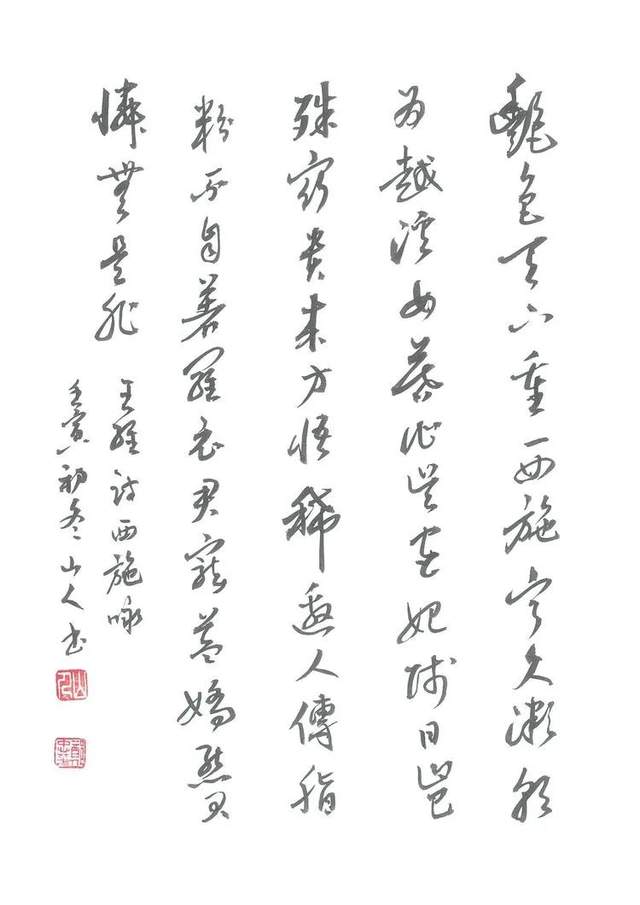 艷色天下重西施寧久微朝
为越溪女暮作吴宫妃賤日豈
殊眾貴来方悟稀邀人傅脂
粉不自著羅衣君寵益嬌態君
憐無是非
王維詩西施咏
壬寅初冬山人书
山人